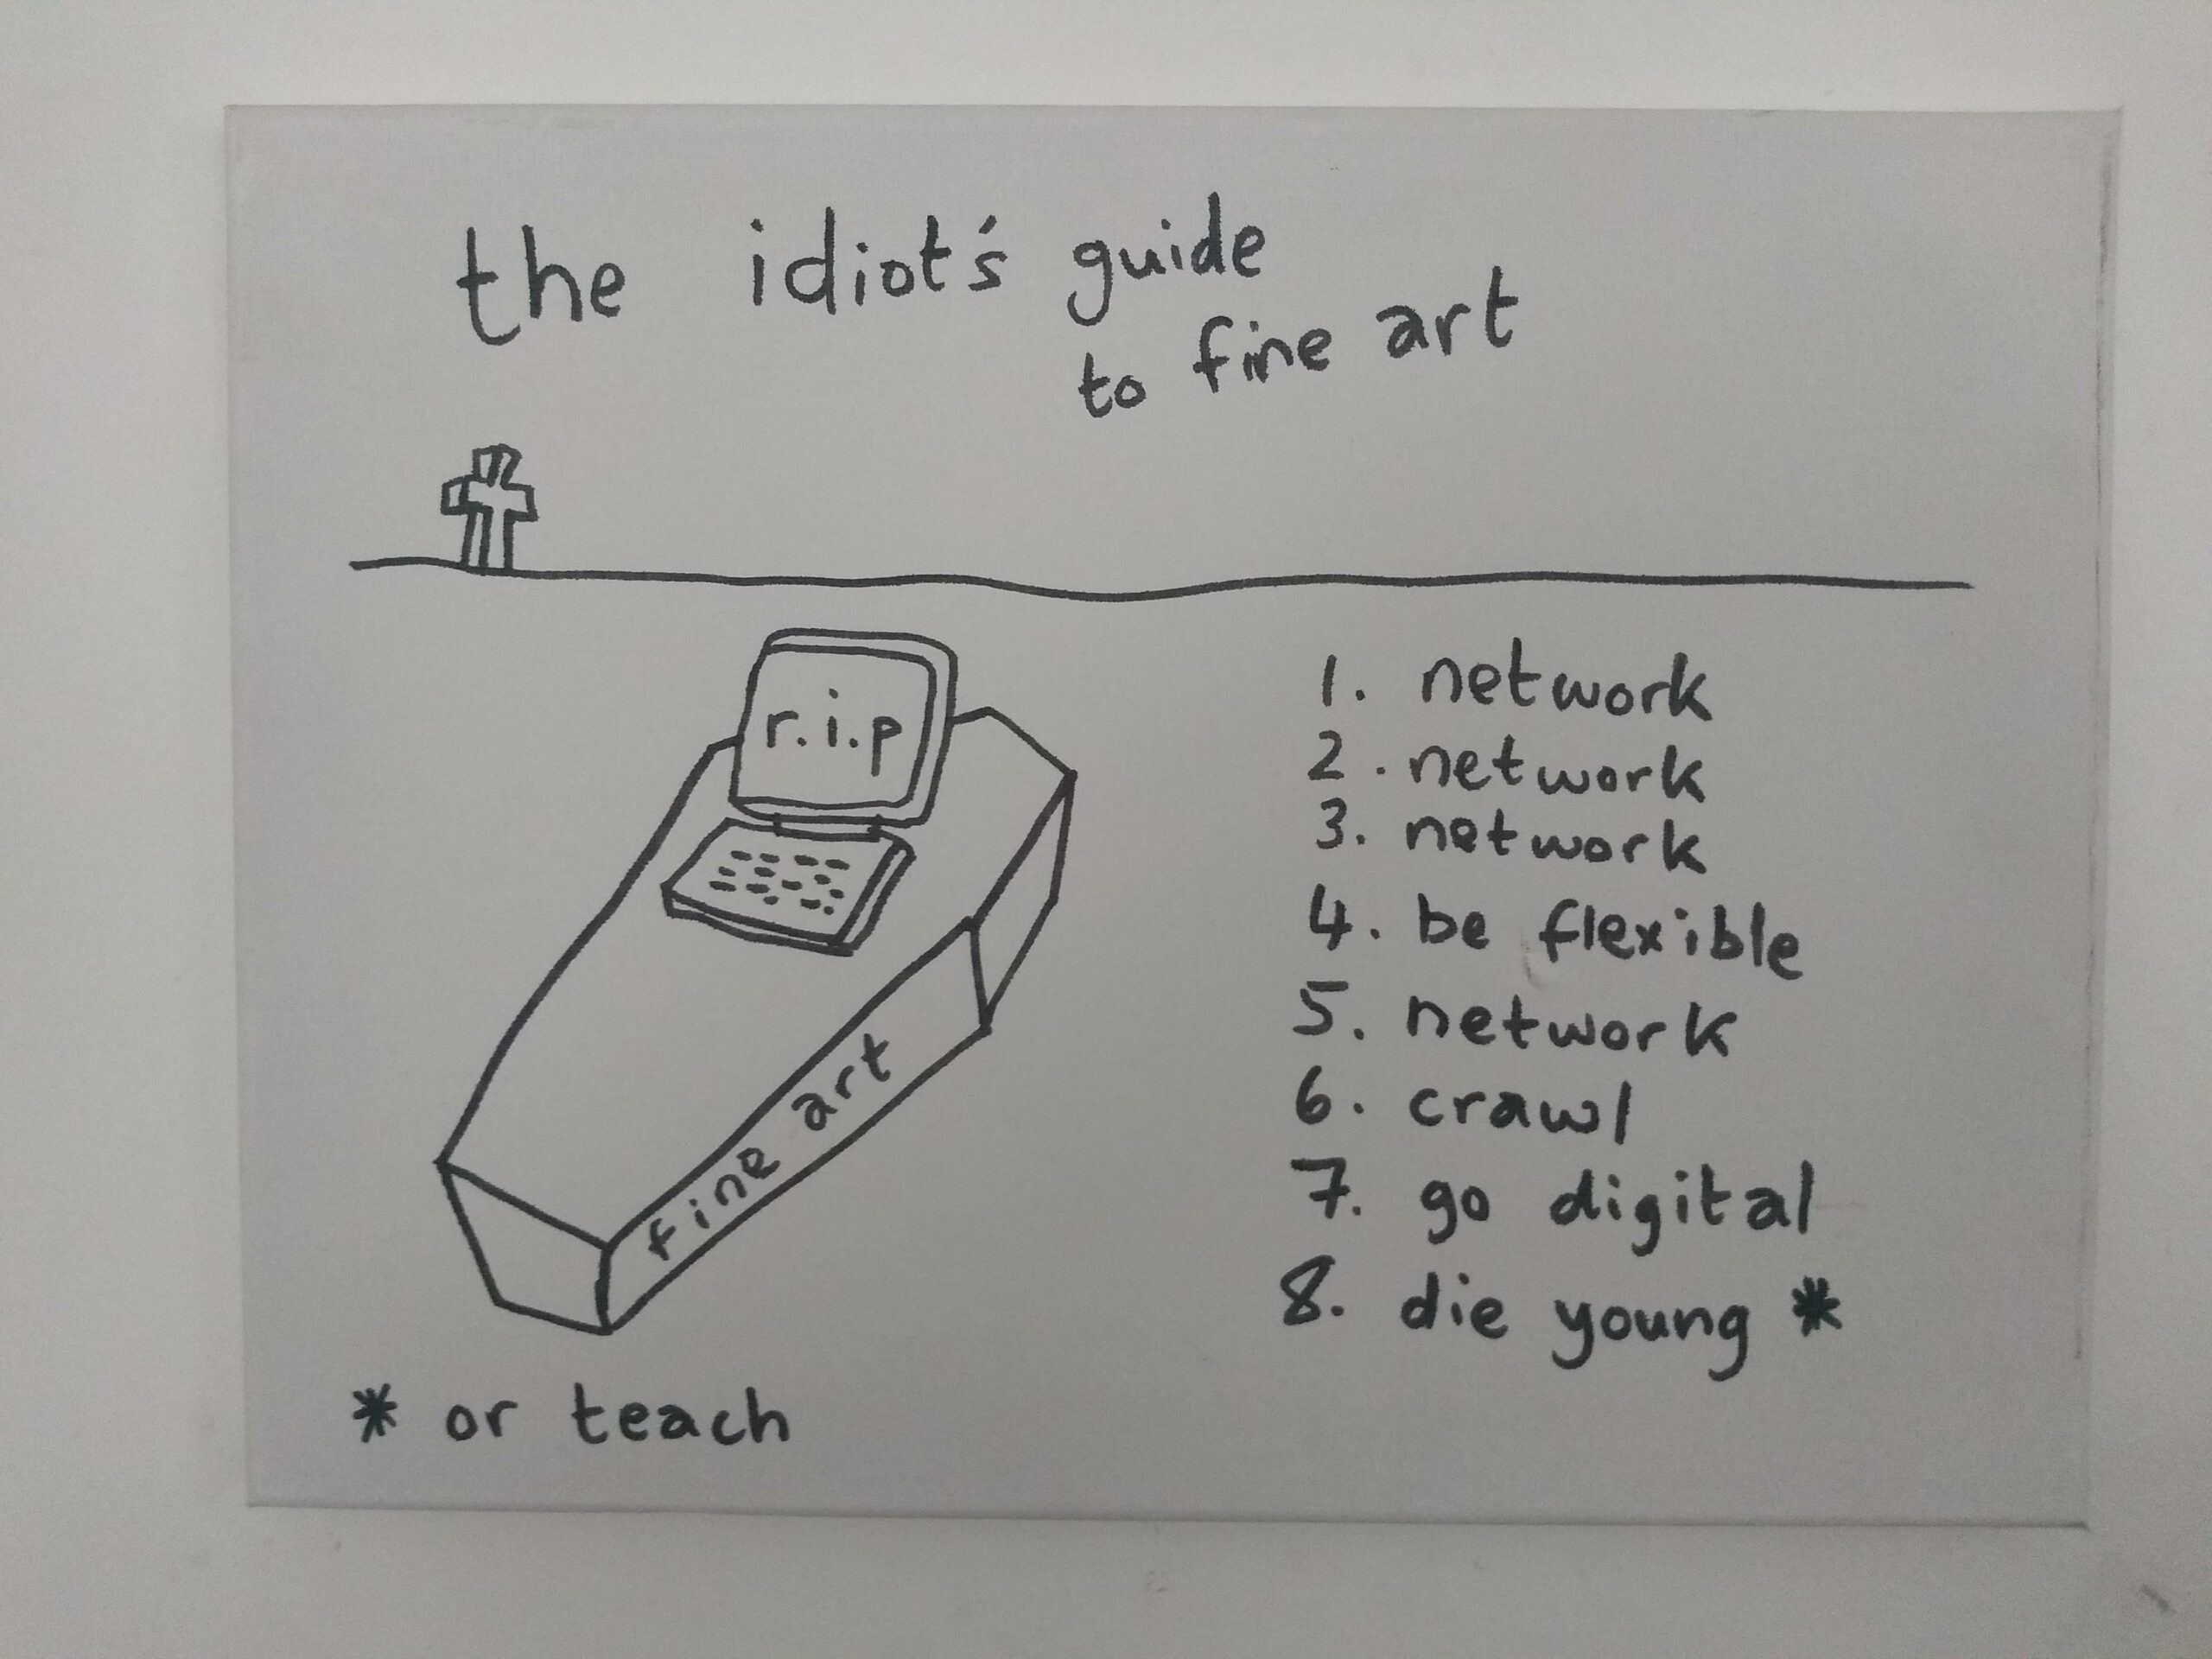 the idiot's guide
to fine art
r.i.p
fine art
1. network
2. network
3. network
4. be flexible
5. network
6. crawl
7. go digital
8. die young *
* or teach